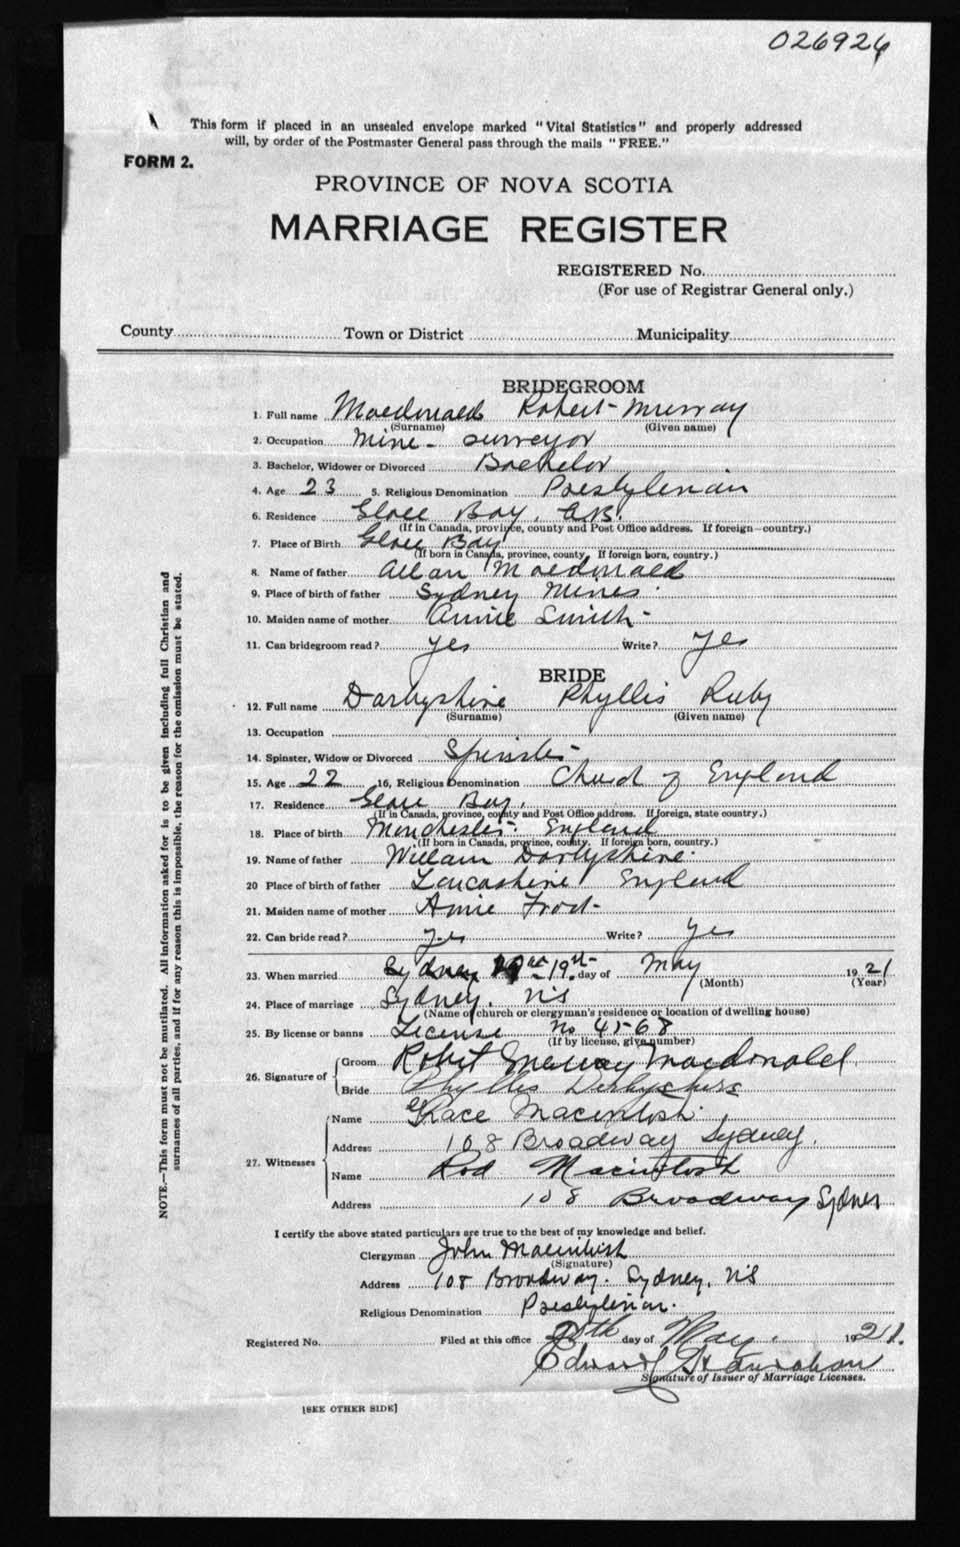 026926
This form if placed in an unsealed envelope marked "Vital Statistics" and properly addressed
will, by order of the Postmaster General pass through the mails "FREE."
FORM 2.
PROVINCE OF NOVA SCOTIA
MARRIAGE REGISTER
REGISTERED No.
(For use of Registrar General only.)
County Town or District Municipality
BRIDEGROOM
1. Full name Macdonald Robert Murray
(Surname) (Given name)
2. Occupation Mine surveyor
3. Bachelor, Widower or Divorced Bachelor
4. Age 23 5. Religious Denomination Presbyterian
6. Residence Glace Bay, C.B.
(If in Canada, province, county and Post Office address. If foreign—country.)
7. Place of Birth Glace Bay
(If born in Canada, province, county. If foreign born, country.)
8. Name of father Allan Macdonald
9. Place of birth of father Sydney Mines
10. Maiden name of mother Annie Smith
11. Can bridegroom read? yes Write? yes
BRIDE
12. Full name Darbyshire Phyllis Ruby
(Surname) (Given name)
13. Occupation
14. Spinster, Widow or Divorced Spinster
15. Age 22 16, Religious Denomination Church of England
17. Residence Glace Bay,
(If in Canada, province, county and Post Office address. If foreign, state country.)
18. Place of birth Manchester England
(If born in Canada, province, county. If foreign born, country.)
19. Name of father William Darbyshire
20 Place of birth of father Lancashire England
21. Maiden name of mother Annie Frost
22. Can bride read? yes Write? yes
23. When married Sydney 19th day of May 1921
(Month) (Year)
24. Place of marriage Sydney. NS
(Name of church or clergyman's residence or location of dwelling house)
25. By license or banns License No 4568
(If by license, give number)
26. Signature of Groom Robert Murray Macdonald
Bride Phyllis Derbyshire
27. Witnesses Name Grace Macintosh
Address 108 Broadway Sydney.
Name Rod Macintosh
Address 108 Broadway Sydney
I certify the above stated particulars are true to the best of my knowledge and belief.
Clergyman John Macintosh
(Signature)
Address 108 Broadway. Sydney, NS
Religious Denomination Presbyterian.
Registered No. Filed at this office 20th day of May. 1921.
Edward
Signature of Issuer of Marriage Licenses.
[SEE OTHER SIDE]
NOTE.—This form must not be mutilated. All information asked for is to be given including full Christian and
surnames of all parties, and if for any reason this is impossible, the reason for the omission must be stated.